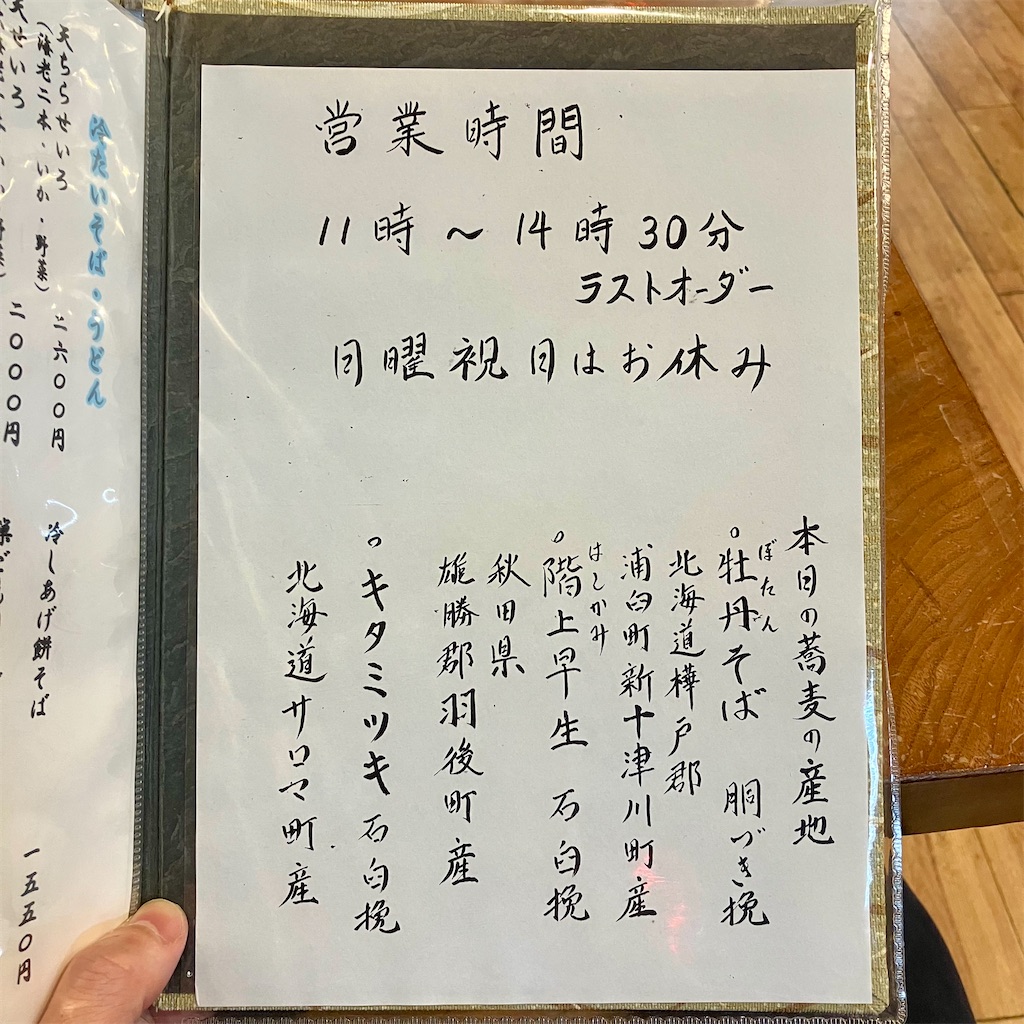 営業時間
11時～14時30分
ラストオーダー
日曜祝日はお休み
本日の蕎麦の産地
ぼたん
。牡丹そば 胴づき挽
北海道樺戸郡
浦臼町新十津川町産
はしかみ
。階上早生 石臼挽
秋田県
雄勝郡羽後町産
。キタミツキ石臼挽
北海道サロマ町産
冷たいそば・うどん
天ちらせいろ
(海老二本・いか・野菜) 二六〇〇円
天せいろ
二〇〇〇円
冷しあげ餅そば
一五五〇円